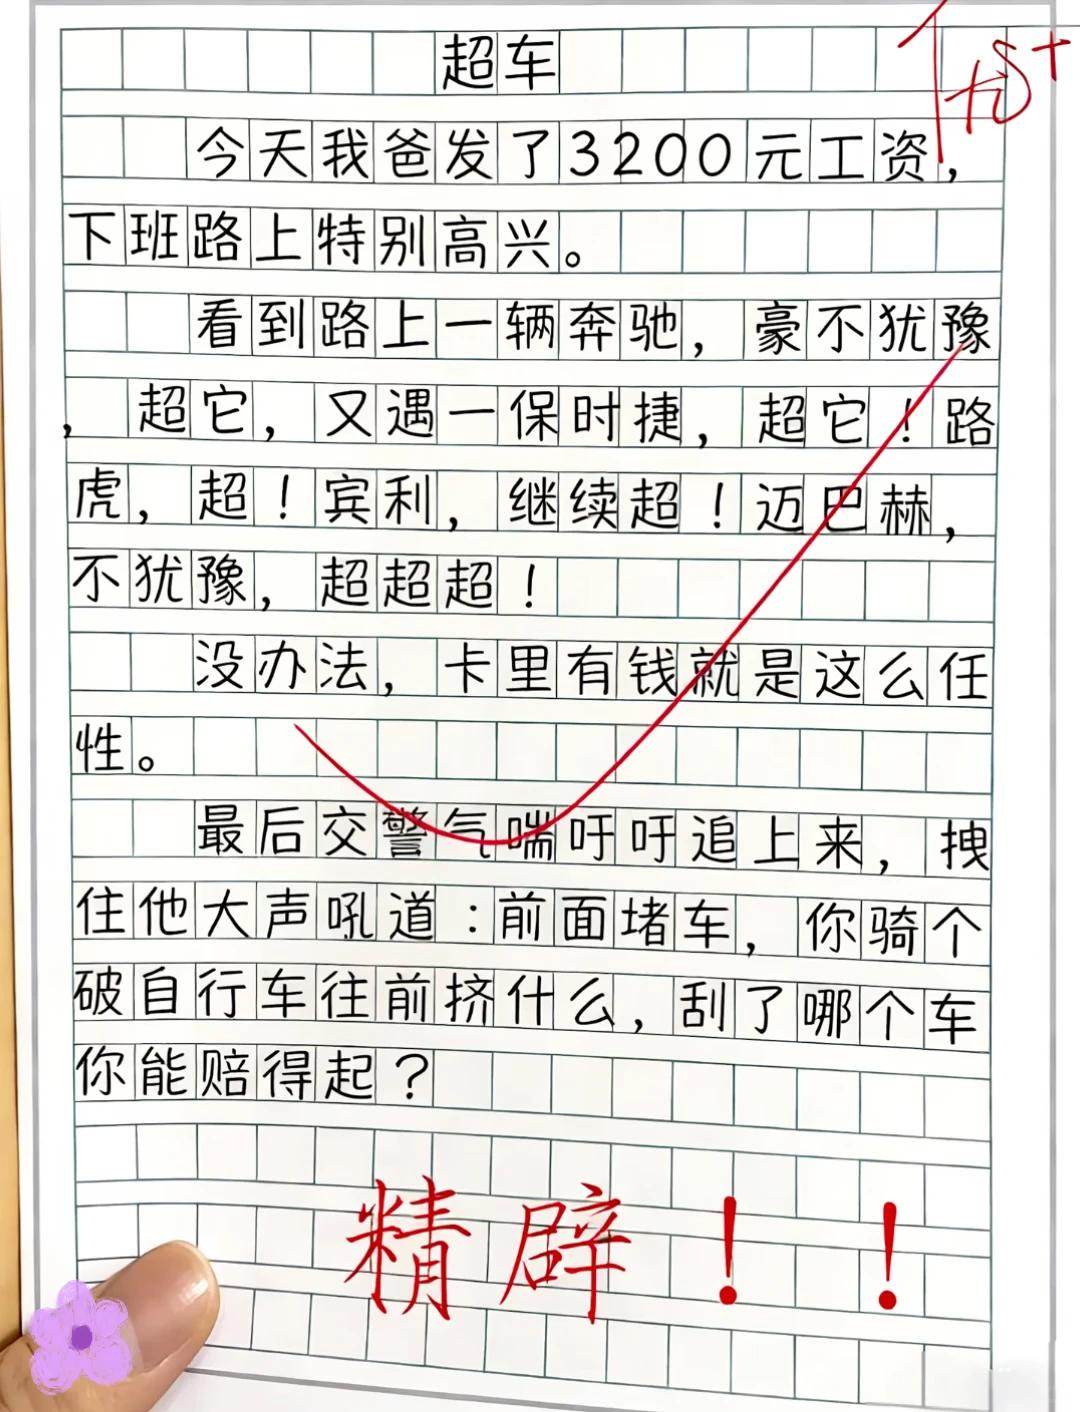 超车
优+
今天我爸发了3200元工资，
下班路上特别高兴。
看到路上一辆奔驰，豪不犹豫
，超它，又遇一保时捷，超它！路
虎，超！宾利，继续超！迈巴赫，
不犹豫，超超超！
没办法，卡里有钱就是这么任
性。
最后交警气喘吁吁追上来，拽
住他大声吼道：前面堵车，你骑个
破自行车往前挤什么，刮了哪个车
你能赔得起？
精辟！！